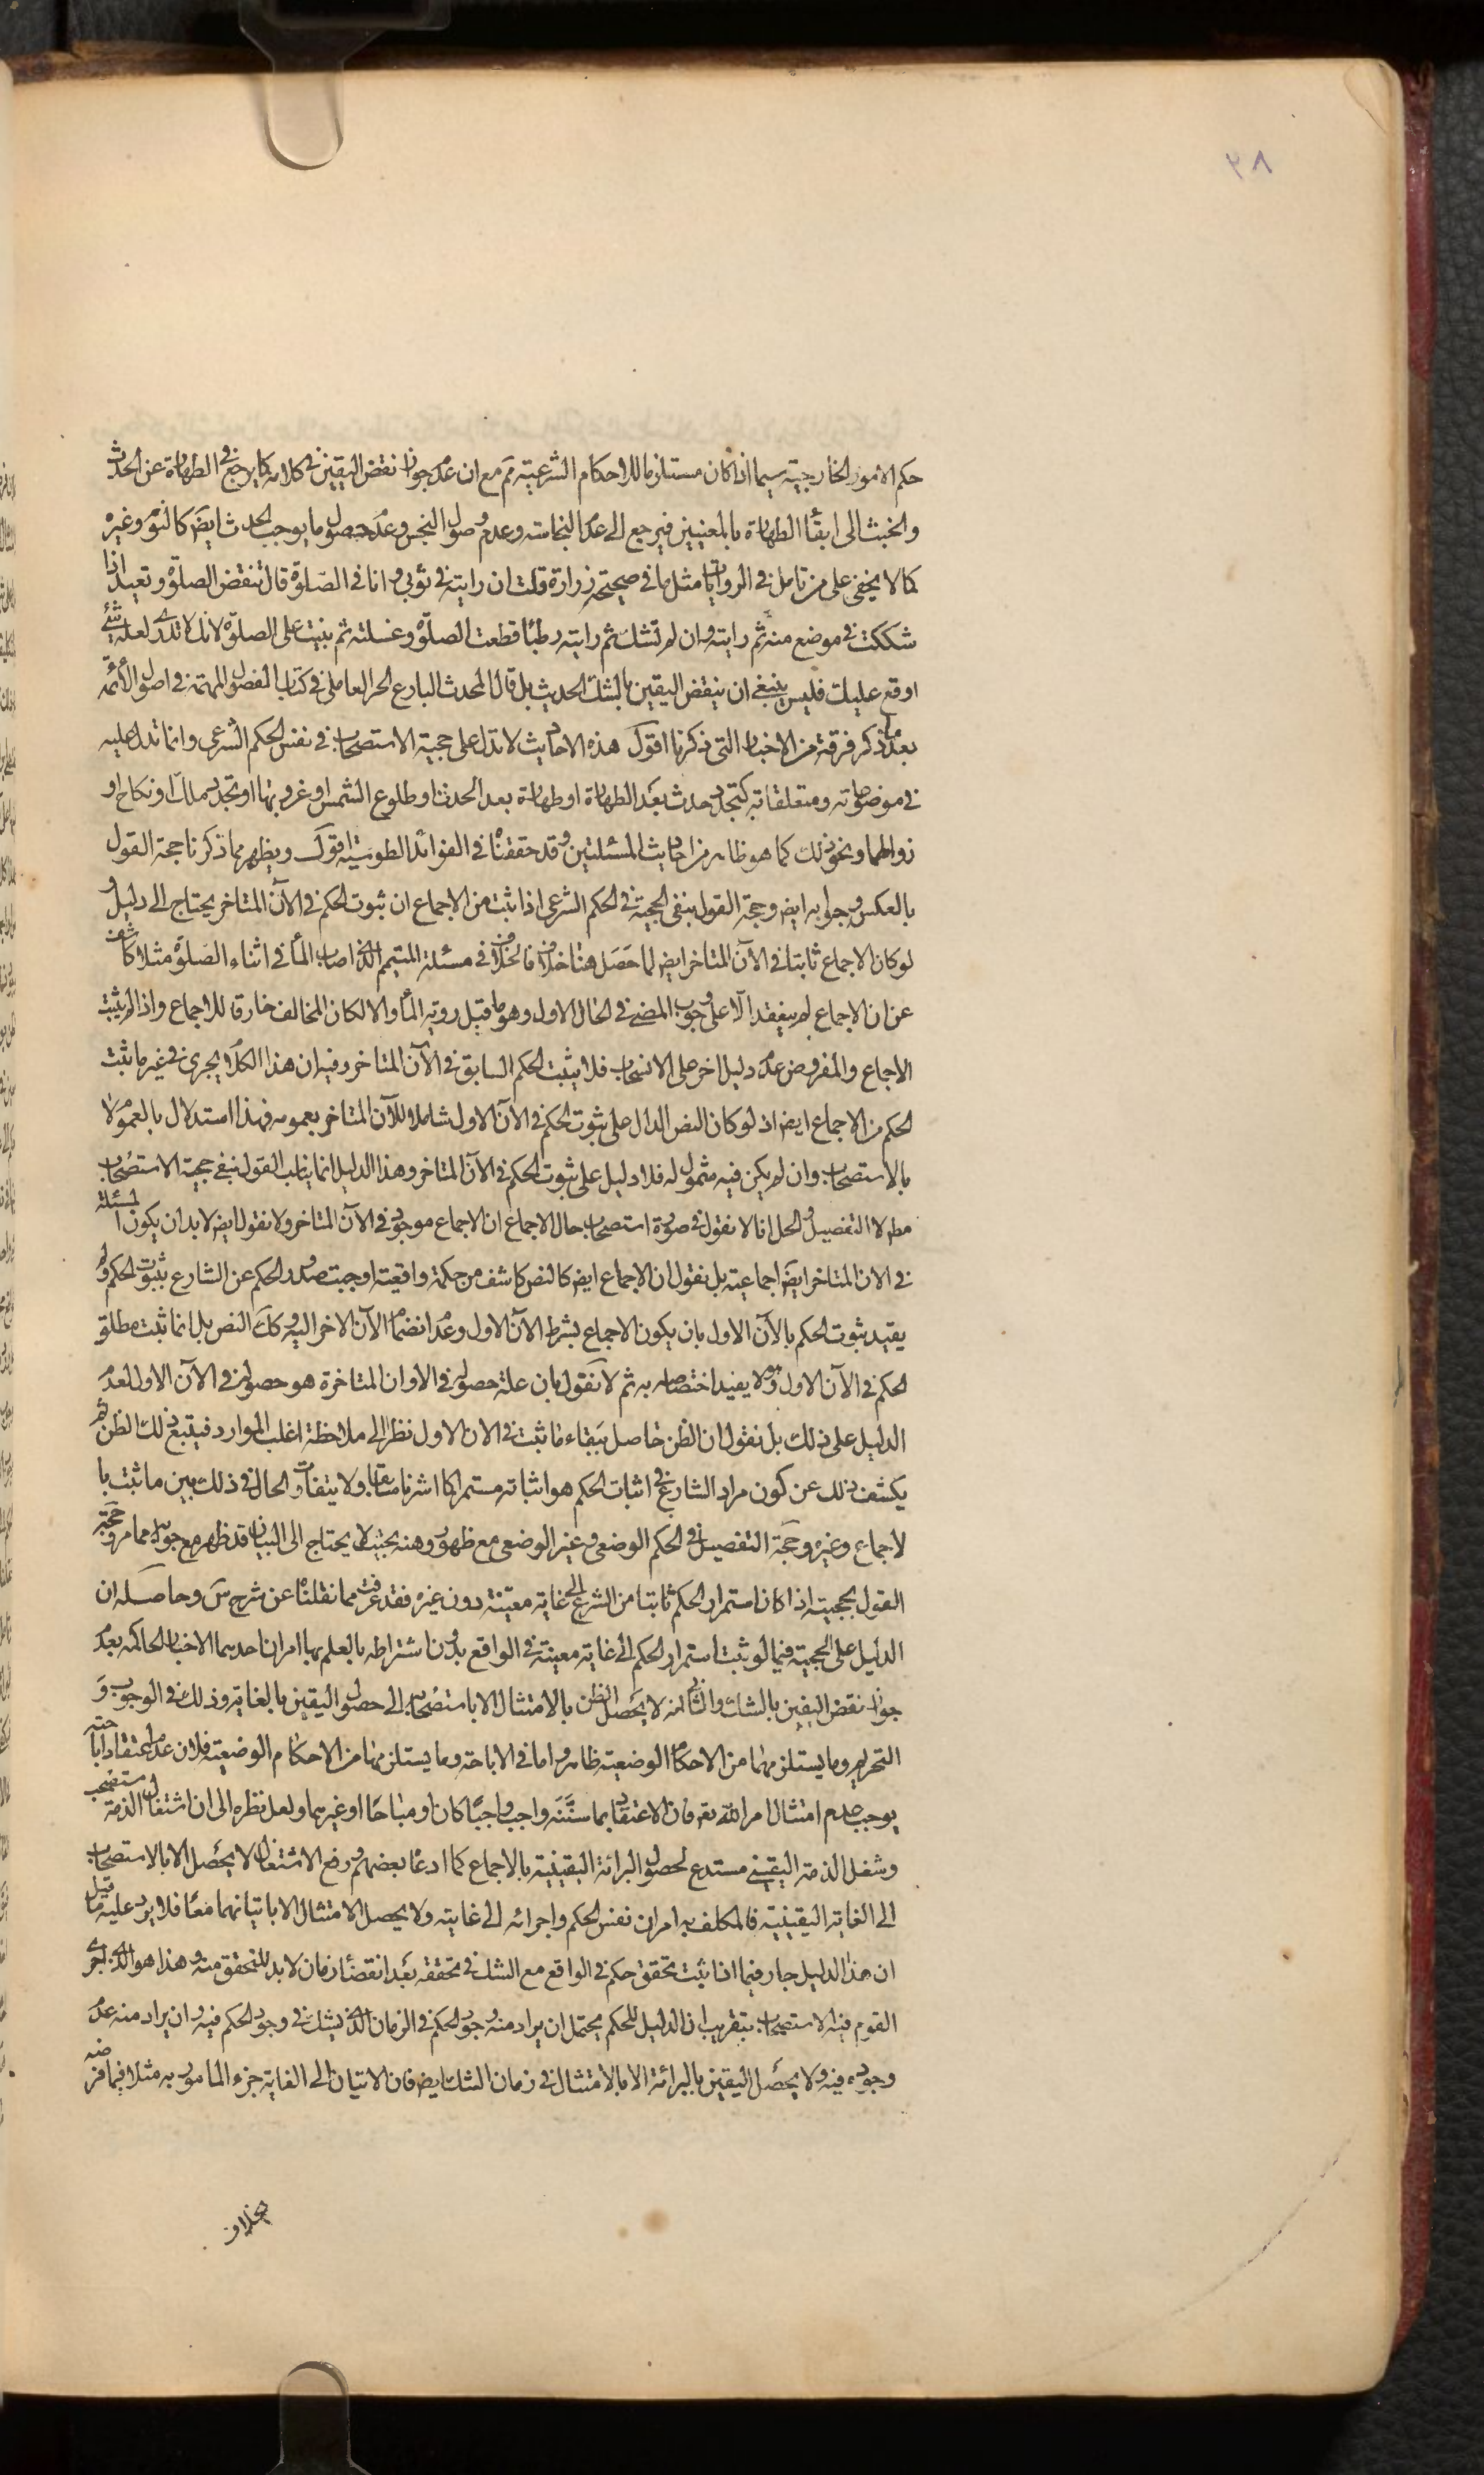 ٨٩
حكم الامور الخارجية سيما اذا كان مستلزما للاحكام الشرعية ثم مع ان عدم جواز نقض اليقين في كلامه كما يرجع في الطهارة عن الحدث
والخبث الى ابقاء الطهارة بالمعنيين فيرجع الى عدم النجاسة وعدم وصول النجس وعدم حصول ما يوجب الحدث ايضا كالنوم وغيره
كما لا يخفى على من تامل في الروايات مثل ما في صحيحة زرارة قلت ان رايته في ثوبي وانا في الصلوة قال تنقض الصلوة وتعيد اذا
شككت في موضع منه ثم رايته وان لم تشك ثم رايته رطبا قطعت الصلوة وغسلته ثم بنيت على الصلوة لانك لا تدري لعله شئ
اوقع عليك فليس ينبغي ان ينقض اليقين بالشك الحديث بل قال المحدث البارع الحر العاملي في كتاب الفصول المهمة في اصول الأئمة
بعد ما ذكر فرقة من الاخبار التي ذكرنا اقول هذه الاحاديث لا تدل على حجية الاستصحاب في نفس الحكم الشرعي وانما تدل عليه
في موضوعاته ومتعلقاته كتجدد حدث بعد الطهارة او طهارة بعد الحدث او طلوع الشمس او غروبها او تجدد ملك او نكاح او
زوالهما ونحو ذلك كما هو ظاهر من احاديث المسئلتين وقد حققناه في الفوائد الطوسية اقول ويظهر مما ذكرنا حجة القول
بالعكس وجوابه ايض وحجة القول بنفى الحجية في الحكم الشرعي اذا ثبت من الاجماع ان ثبوت الحكم في الآن المتاخر يحتاج الى دليل و
لو كان الاجماع ثابتا في الآن المتاخر ايض لما حصل هنا خلاف فالخلاف في مسئلة المتيمم الذي اصاب الماء في اثناء الصلوة مثلا كاشف
عن ان الاجماع لم ينعقد الا على وجوب المضى في الحال الاول وهو ما قبل رويه الماء والا لكان المخالف خارقا للاجماع واذا لم يثبت
الاجماع والمفروض عدم دليل اخر على الانسحاب فلا يثبت الحكم السابق في الآن المتاخر وفيه ان هذا الكلام يجرى في غير ما ثبت
الحكم من الاجماع ايض اذ لو كان النص الدال على ثبوت الحكم في الآن الاول شاملا للآن المتاخر بعمومه فهذا استدلال بالعموم لا
بالاستصحاب وان لم يكن فيه شمول له فلا دليل على ثبوت الحكم في الآن المتاخر وهذا الدليل انما يناسب القول بنفى حجية الاستصحاب
مطم لا التفصيل والحل انا لا نقول في صورة استصحاب حال الاجماع ان الاجماع موجود في الآن المتاخر ولا نقول ايض لا بد ان يكون المسئلة
في الان المتاخر ايض اجماعية بل نقول ان الاجماع ايض كالنص كاشف من حكمة واقعية اوجبت صدور الحكم عن الشارع بثبوت الحكم ولم
يقيد ثبوت الحكم بالآن الاول بان يكون الاجماع بشرط الآن الاول وعدم انضمام الآن الاخر اليه وكك النص بل انما ثبت مطلق
الحكم في الآن الاول وهو لا يفيد اختصاصه به ثم لا نقول بان علة حصوله في الاوان المتاخرة هو حصوله في الآن الاول لعدم
الدليل على ذلك بل نقول ان الظن حاصل ببقاء ما ثبت في الان الاول نظرا الى ملاحظة اغلب الموارد فيتبع ذلك الظن ثم
يكشف ذلك عن كون مراد الشارع في اثبات الحكم هو اثباته مستمرا كما اشرنا سابقا ولا يتفاوت الحال في ذلك بين ما ثبت با
لاجماع وغيره وحجة التفصيل في الحكم الوضعى وغير الوضعى مع ظهور وهنه بحيث لا يحتاج الى البيان قد ظهر مع جوابه مما مر وحجة
القول بحجيته اذا كان استمرار الحكم ثابتا من الشرع الى غاية معينة دون غيره فقد عرفت مما نقلناه عن شرح س وحاصله ان
الدليل على الحجية فيما لو ثبت استمرار الحكم الى غاية معينة في الواقع بدون اشتراطه بالعلم بها امران احدهما الاخبار الحاكمة بعدم
جواز نقض اليقين بالشك والثاني انه لا يحصل الظن بالامتثال الا باستصحابه الى حصول اليقين بالغاية وذلك في الوجوب و
التحريم وما يستلزمهما من الاحكام الوضعية ظاهر واما في الاباحة وما يستلزمها من الاحكام الوضعية فلان عدم اعتقاد اباحته
يوجب عدم امتثال امر الله تعه فان الاعتقاد بما سننه واجب واجبا كان او مباحا او غيرهما ولعل نظره الى ان اشتغال الذمة مستصحب
وشغل الذمة اليقينى مستدع لحصول البرائة اليقينية بالاجماع كما ادعاه بعضهم ورفع الاشتغال لا يحصل الا بالاستصحاب
الى الغاية اليقينية فالمكلف به امران نفس الحكم واجرائه الى غايته ولا يحصل الامتثال الا باتيانهما معا فلا يرد عليه ما قيل
ان هذا الدليل جار فيما اذا ثبت تحقق حكم في الواقع مع الشك في تحققه بعد انقضاء زمان لا بد للتحقق منه وهذا هو الذي اجرى
القوم فيه الاستصحاب بتقريب ان الدليل للحكم يحتمل ان يراد منه وجود الحكم في الزمان الذي يشك في وجود الحكم فيه وان يراد منه عدم
وجوده فيه ولا يحصل اليقين بالبرائة الا بالامتثال في زمان الشك ايض فان الاتيان الى الغاية جزء المامور به مثلا فيما فرضه
بخلاف